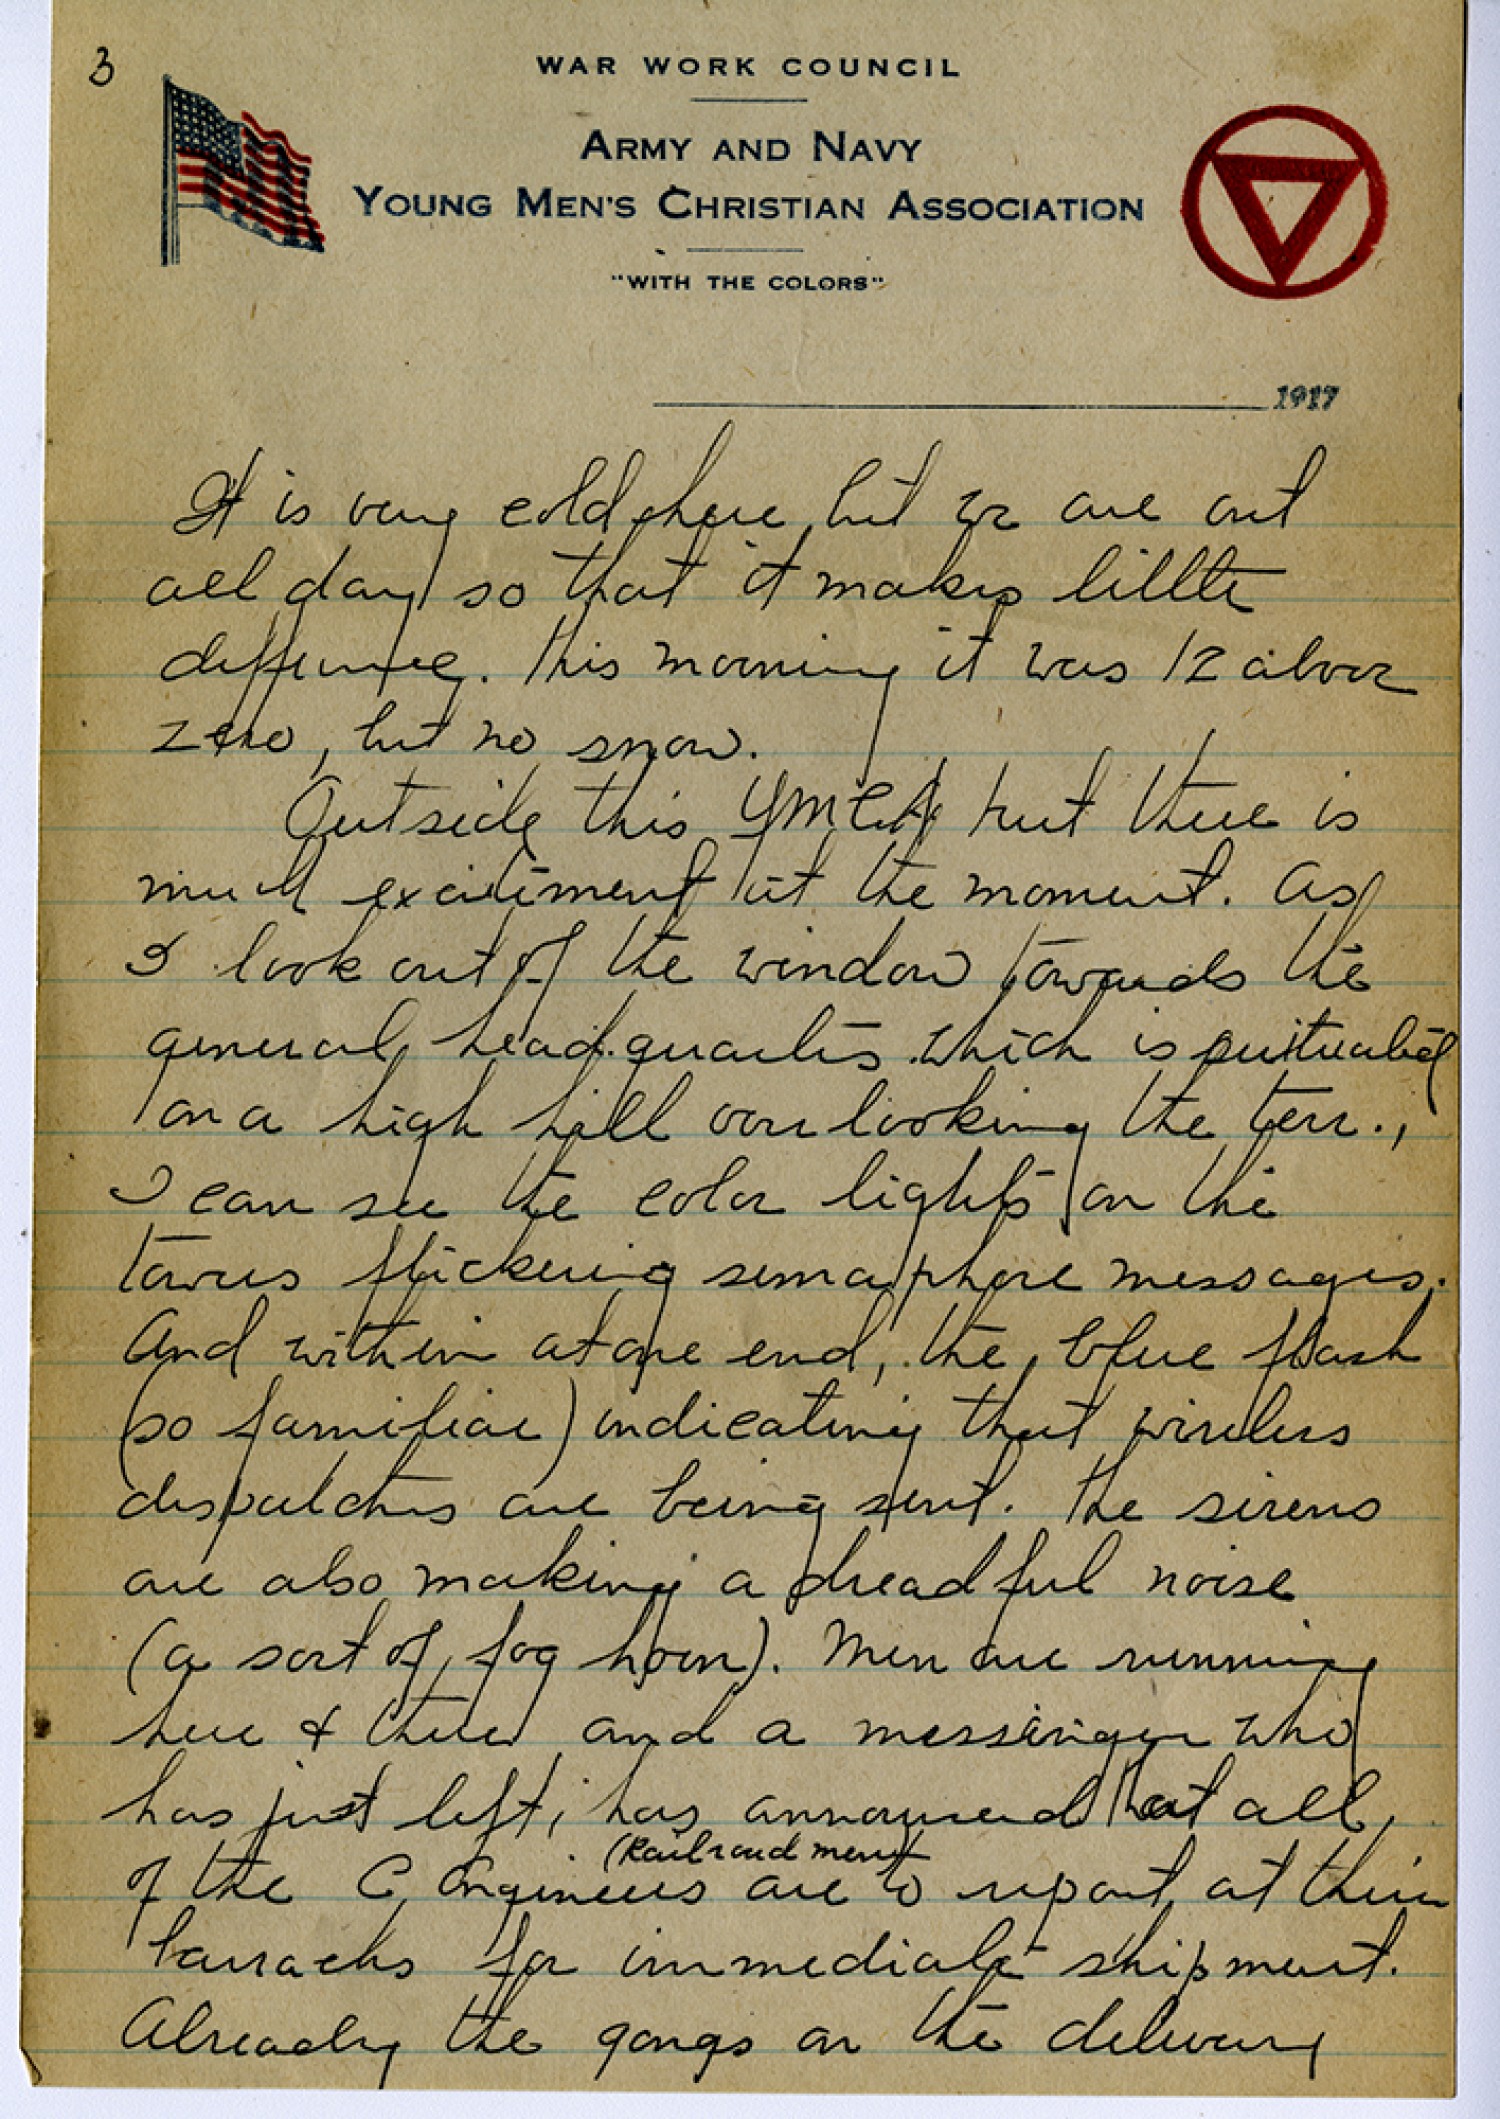 3
WAR WORK COUNCIL
ARMY AND NAVY
YOUNG MEN'S CHRISTIAN ASSOCIATION
"WITH THE COLORS"
1917
It is very cold here, but we are out
all day so that it makes little
difference. This morning it was 12 above
zero, but no snow.
Outside this YMCA hut there is
much excitement at the moment. As
I look out of the window towards the
general headquarters which is situated
on a high hill overlooking the terr.,
I can see the color lights on the
towers flickering semaphore messages.
And within at one end, the blue flash
(so familiar) indicating that wireless
dispatches are being sent. The sirens
are also making a dreadful noise
(a sort of fog horn). Men are running
here & there and a messenger who
has just left, has announced that all
(Railroad men)
of the C, Engineers are to report at their
barracks for immediate shipment.
Already the gangs on the delivery